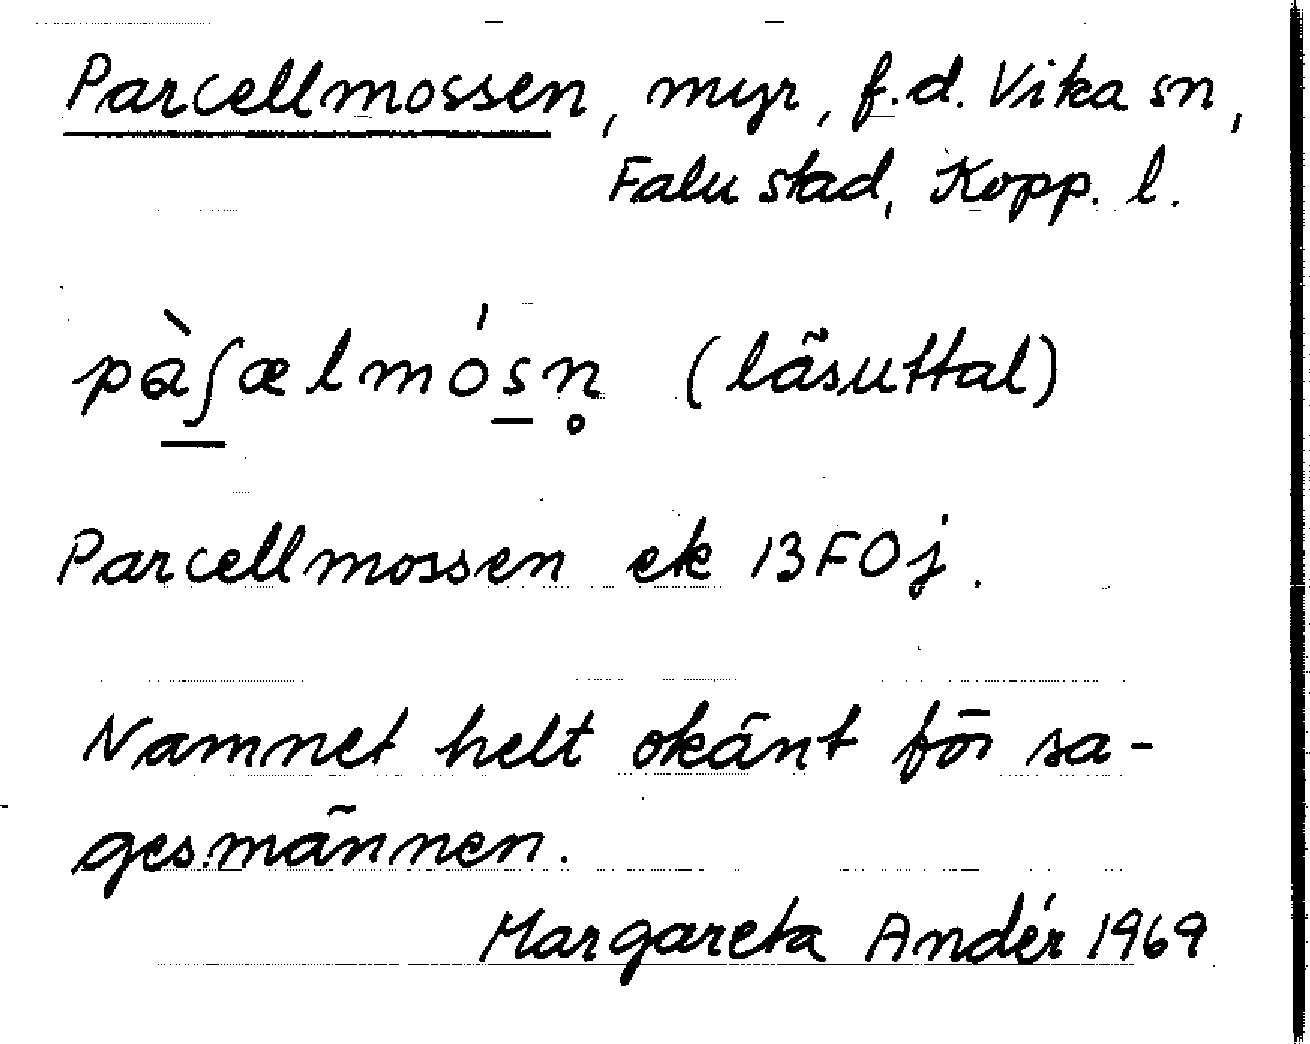 Parcellmossen, myr, f.d. Vika sn,
Falu stad, Kopp. l.
pàʃælmósn̥ (läsuttal)
Parcellmossen ek 13F0j.
Namnet helt okänt för sa-
gesmännen.
Margareta Andér 1969